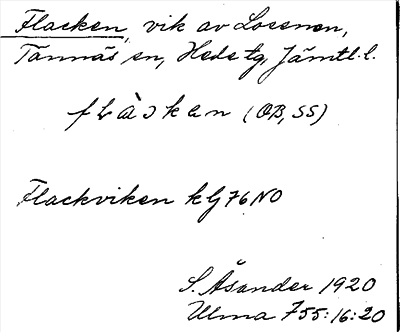 Flacken, vik av Lossnen,
Tännäs sn, Hede tg, Jämtl. l.
(OB, SS)
Flackviken kG 76 NO
S. Åsander 1920
Ulma 755:16:20